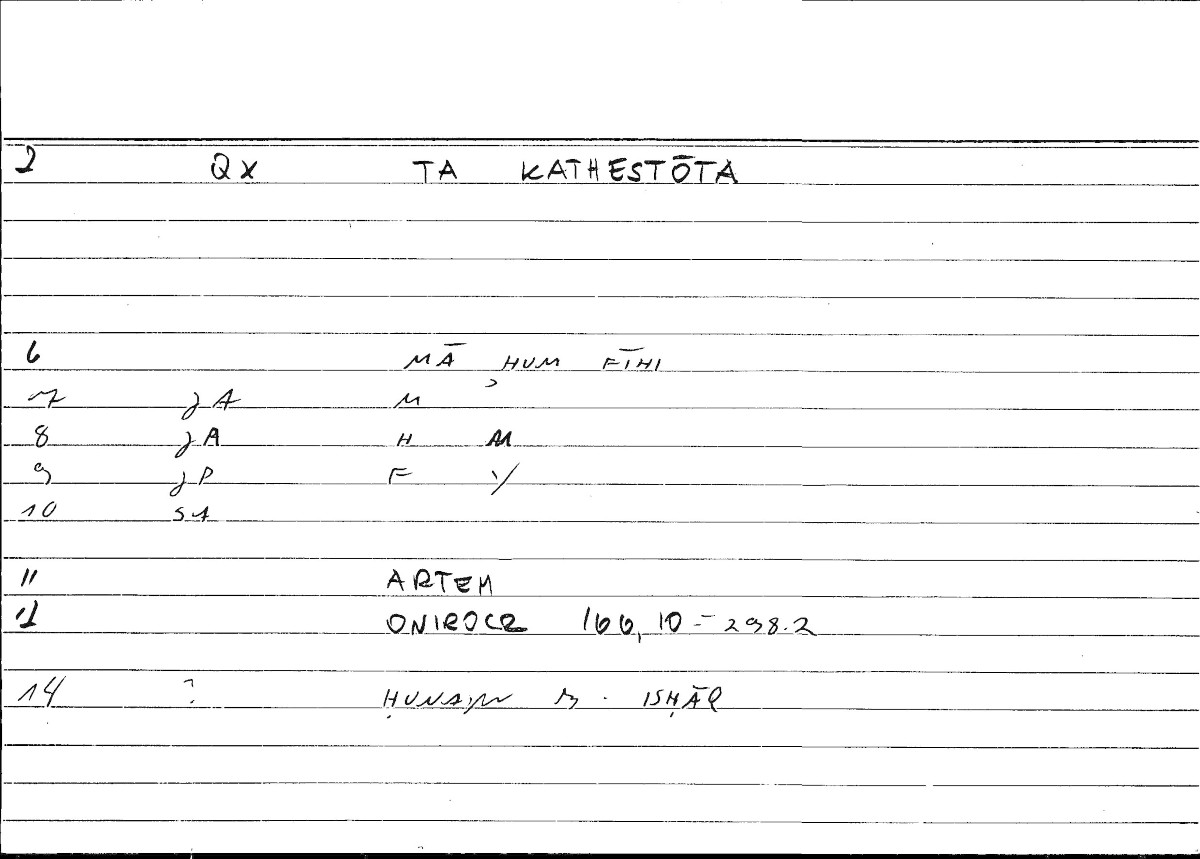 2 QX TA KATHESTŌTA
6 MĀ HUM FĪHI
7 jA M
8 jA H M
9 jP F Y
10 SA
11 ARTEM
12 ONIROCR 166,10 = 298.2
14 ? ḤUNAYN B. ISḤĀQ